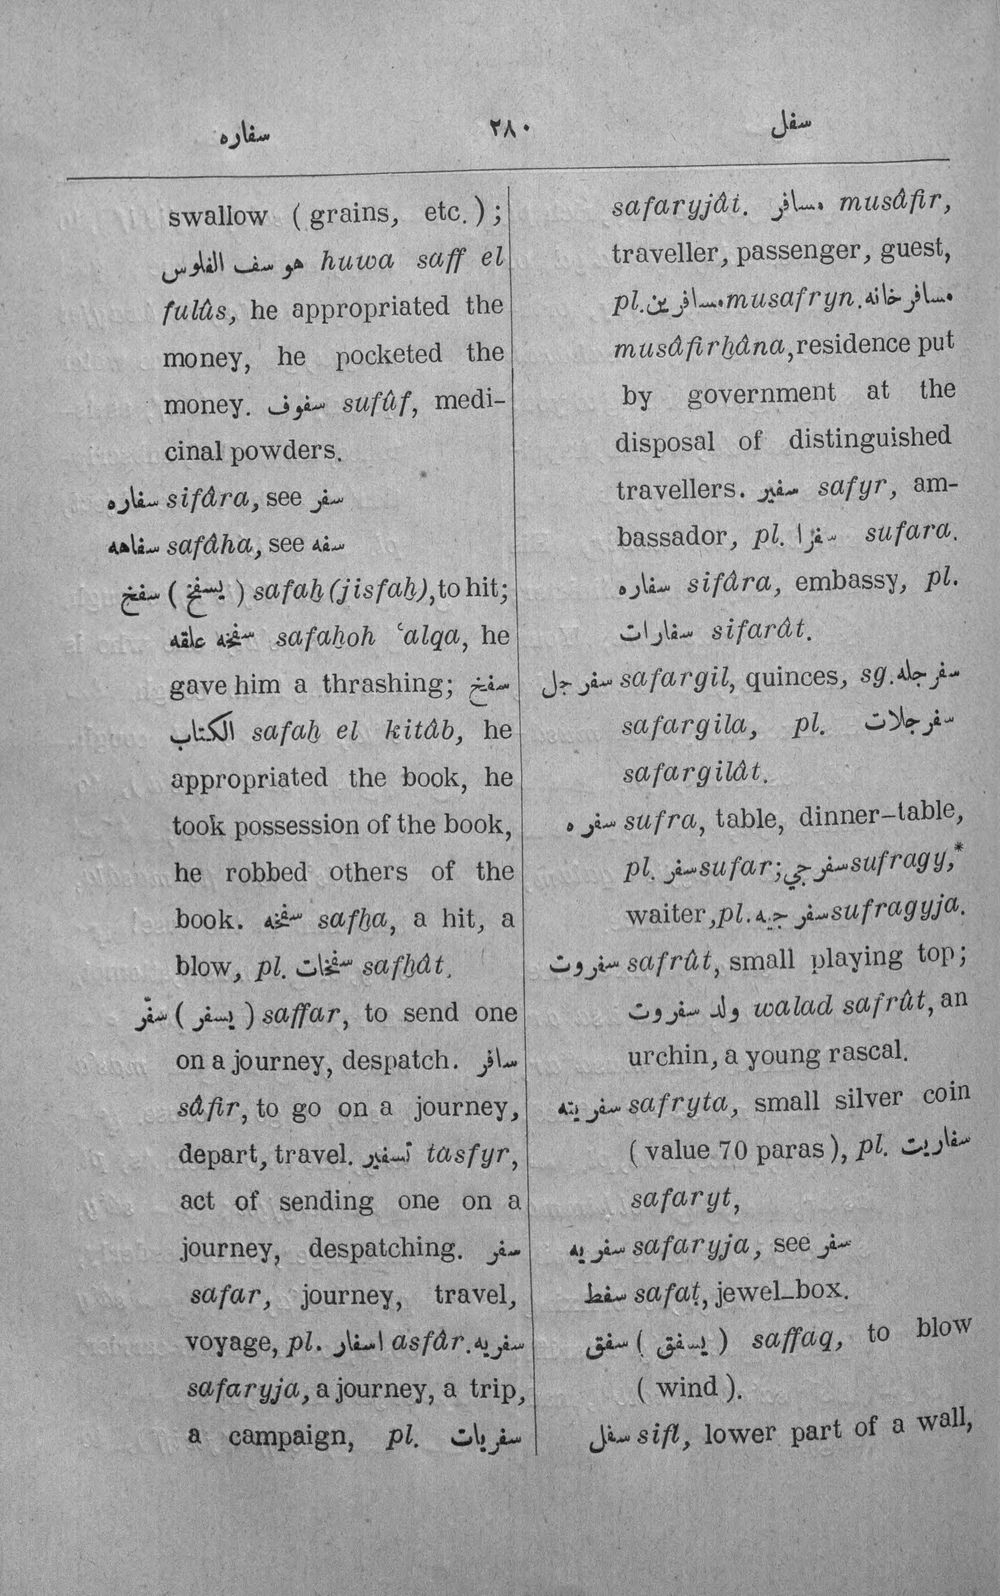 سفاره ٢٨٠ سفل
swallow ( grains, etc. ) ;
هو سف الفلوس huwa saff el
fulûs, he appropriated the
money, he pocketed the
money. سفوف sufûf, medi-
cinal powders.
سفاره sifâra, see سفر
سفاهه safâha, see سفه
سفخ ( يسفخ ) safaẖ (jisfaẖ), to hit;
سفخه علقه safaẖoh ʿalqa, he
gave him a thrashing; سفخ
الكتاب safaẖ el kitâb, he
appropriated the book, he
took possession of the book,
he robbed others of the
book. سفخه safẖa, a hit, a
blow, pl. سفخات safẖât.
سفّر ( يسفر ) saffar, to send one
on a journey, despatch. سافر
sâfir, to go on a journey,
depart, travel. تسفير tasfyr,
act of sending one on a
journey, despatching. سفر
safar, journey, travel,
voyage, pl. اسفار asfâr. سفريه
safaryja, a journey, a trip,
a campaign, pl. سفريات
safaryjât. مسافر musâfir,
traveller, passenger, guest,
pl. مسافرين musafryn. مسافرخانه
musâfirẖâna, residence put
by government at the
disposal of distinguished
travellers. سفير safyr, am-
bassador, pl. سفرا sufara.
سفاره sifâra, embassy, pl.
سفارات sifarât.
سفرجل safargil, quinces, sg. سفرجله
safargila, pl. سفرجلات
safargilât.
سفره sufra, table, dinner-table,
pl. سفر sufar; سفرجي sufragy,*
waiter, pl. سفرجيه sufragyja.
سفروت safrût, small playing top;
ولد سفروت walad safrût, an
urchin, a young rascal.
سفريته safryta, small silver coin
( value 70 paras ), pl. سفاريت
safaryt,
سفريه safaryja, see سفر
سفط safaṭ, jewel-box.
سفق ( يسفق ) saffaq, to blow
( wind ).
سفل sifl, lower part of a wall,